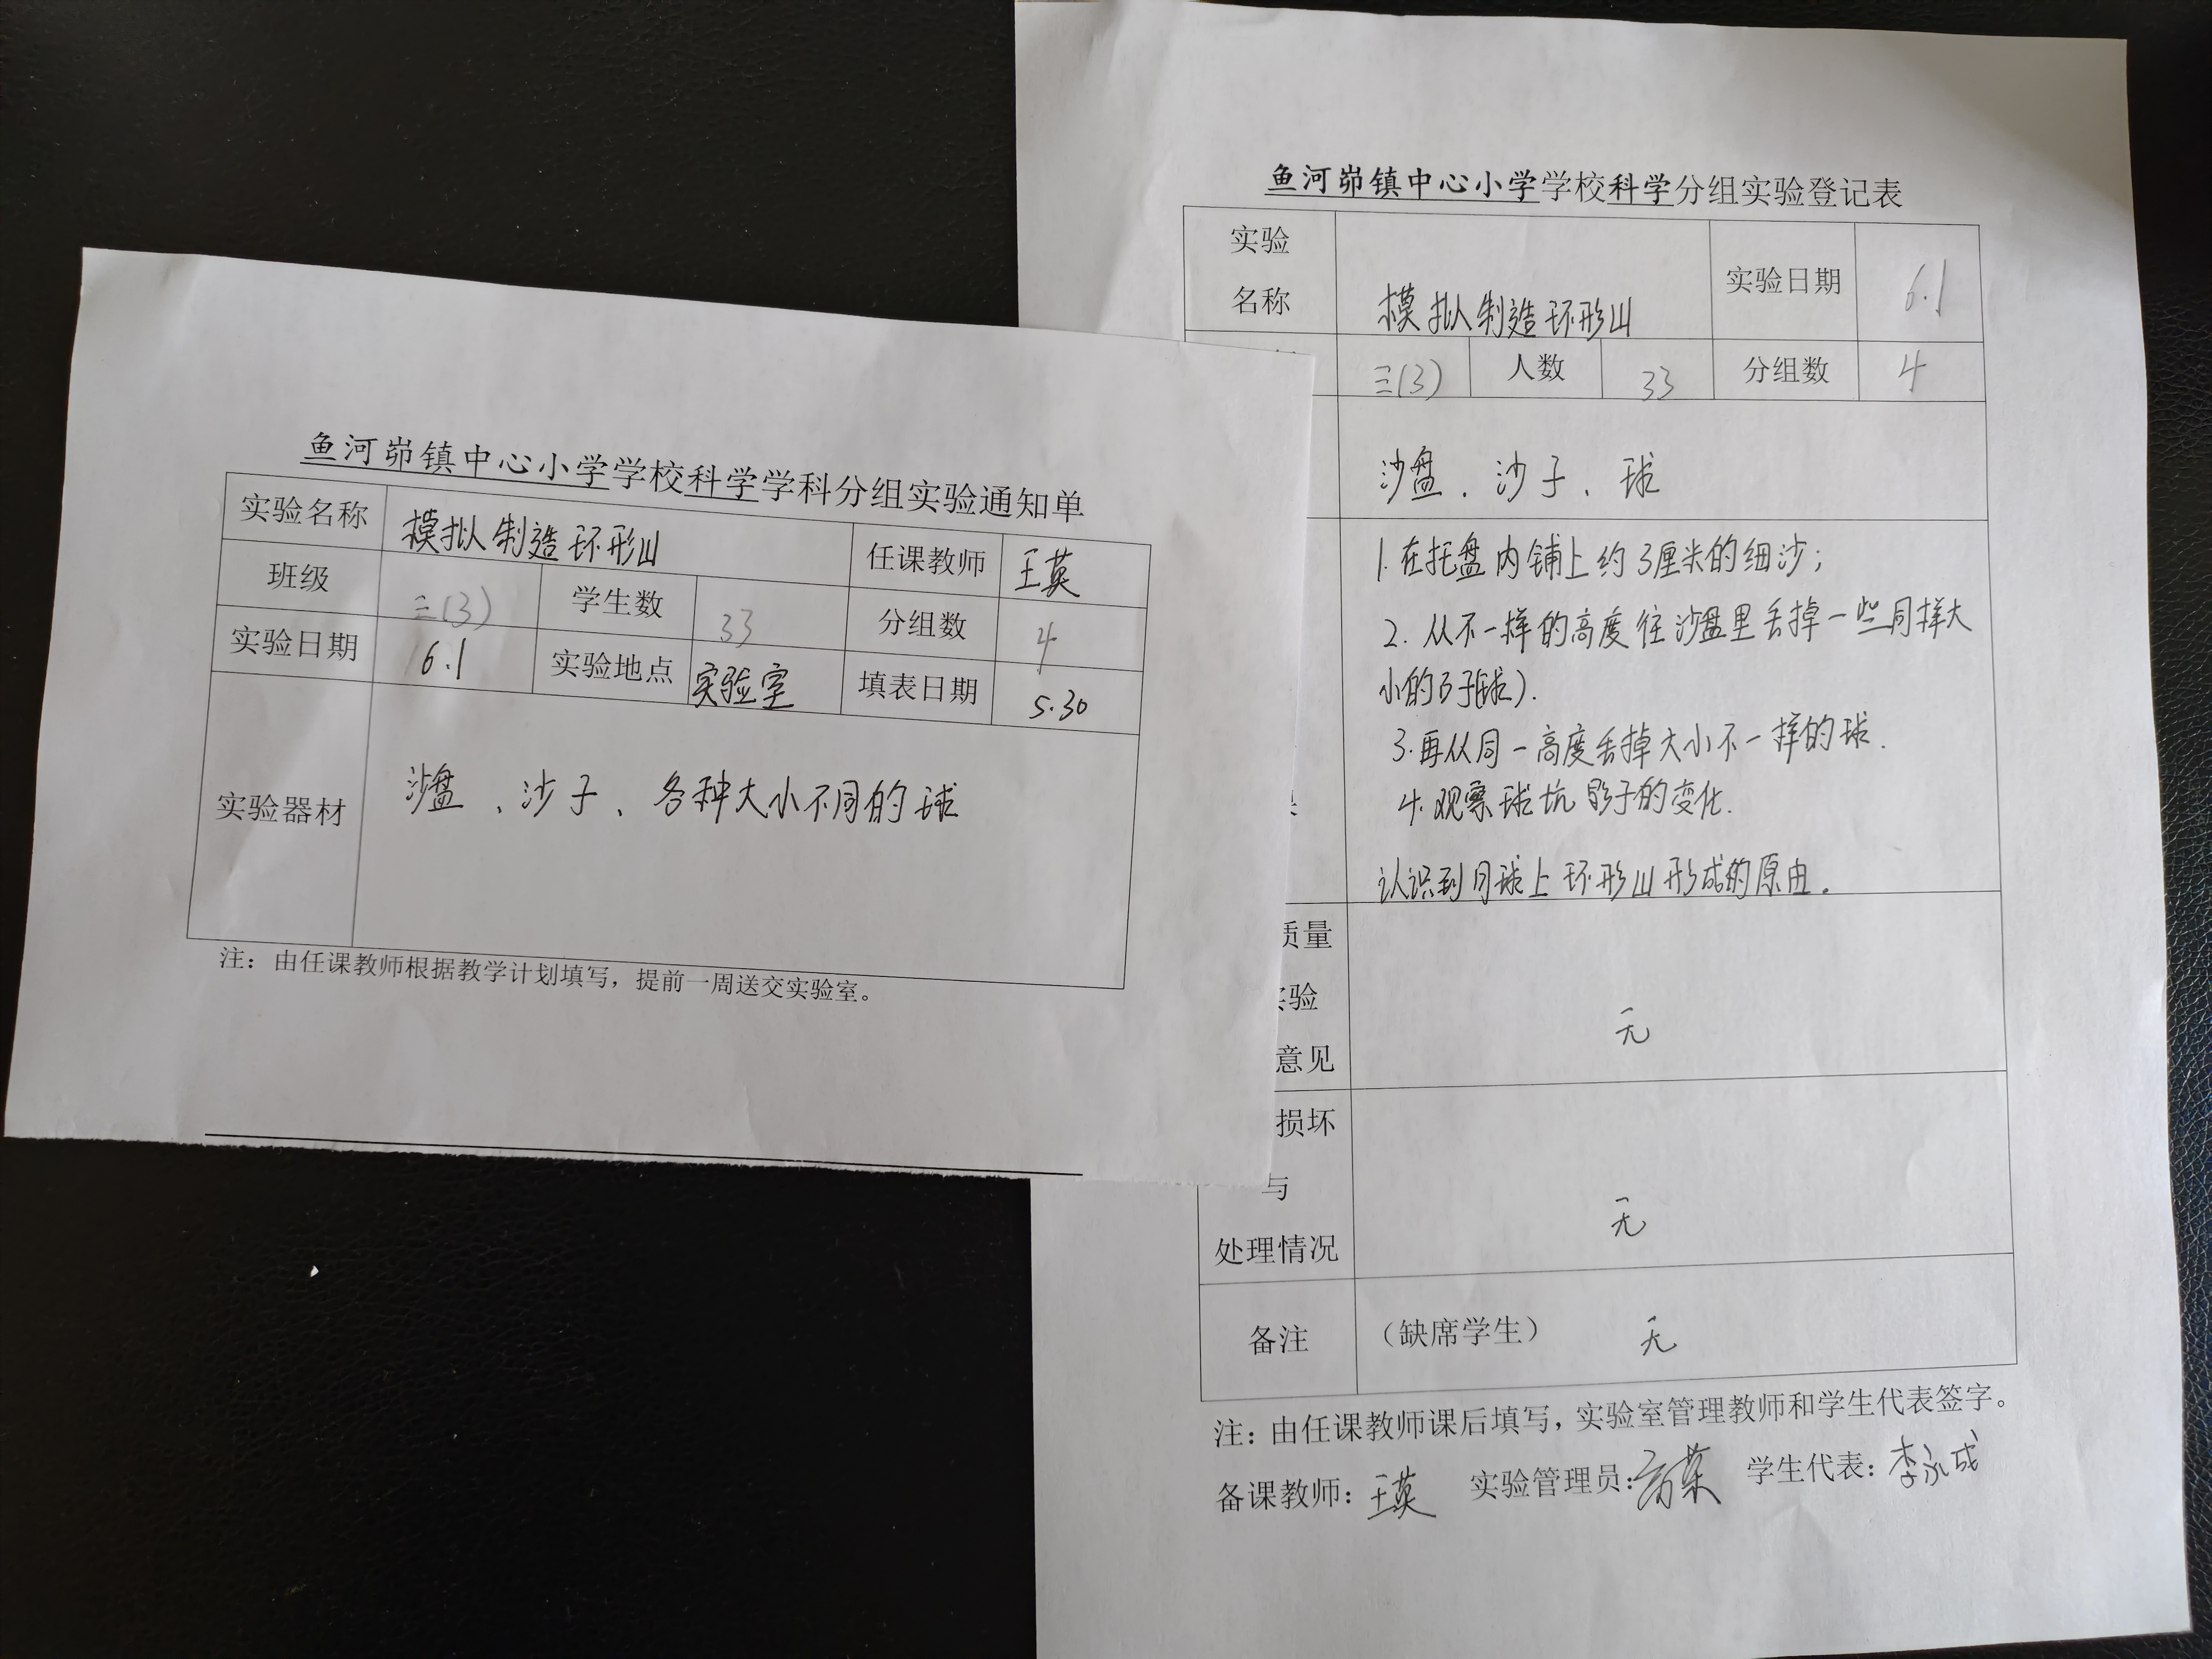 鱼河峁镇中心小学学校科学学科分组实验通知单
实验名称 模拟制造环形山 任课教师 王英
班级 三(3) 学生数 33 分组数 4
实验日期 6.1 实验地点 实验室 填表日期 5.30
实验器材 沙盘、沙子、各种大小不同的球
注：由任课教师根据教学计划填写，提前一周送交实验室。
鱼河峁镇中心小学学校科学分组实验登记表
实验
名称 模拟制造环形山 实验日期 6.1
三(3) 人数 33 分组数 4
沙盘、沙子、球
1.在托盘内铺上约3厘米的细沙；
2.从不一样的高度往沙盘里丢掉一些同样大
小的石子(球).
3.再从同一高度丢掉大小不一样的球.
4.观察球坑影子的变化.
认识到月球上环形山形成的原由.
质量
验
意见 无
损坏
与
处理情况 无
备注 （缺席学生） 无
注：由任课教师课后填写，实验室管理教师和学生代表签字。
备课教师：王英 实验管理员： 学生代表：李永成